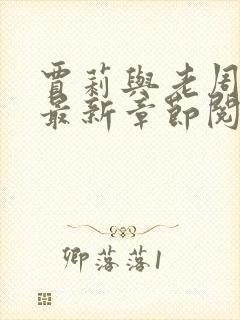 賈莉與老周
最新章節閱
卿落落1